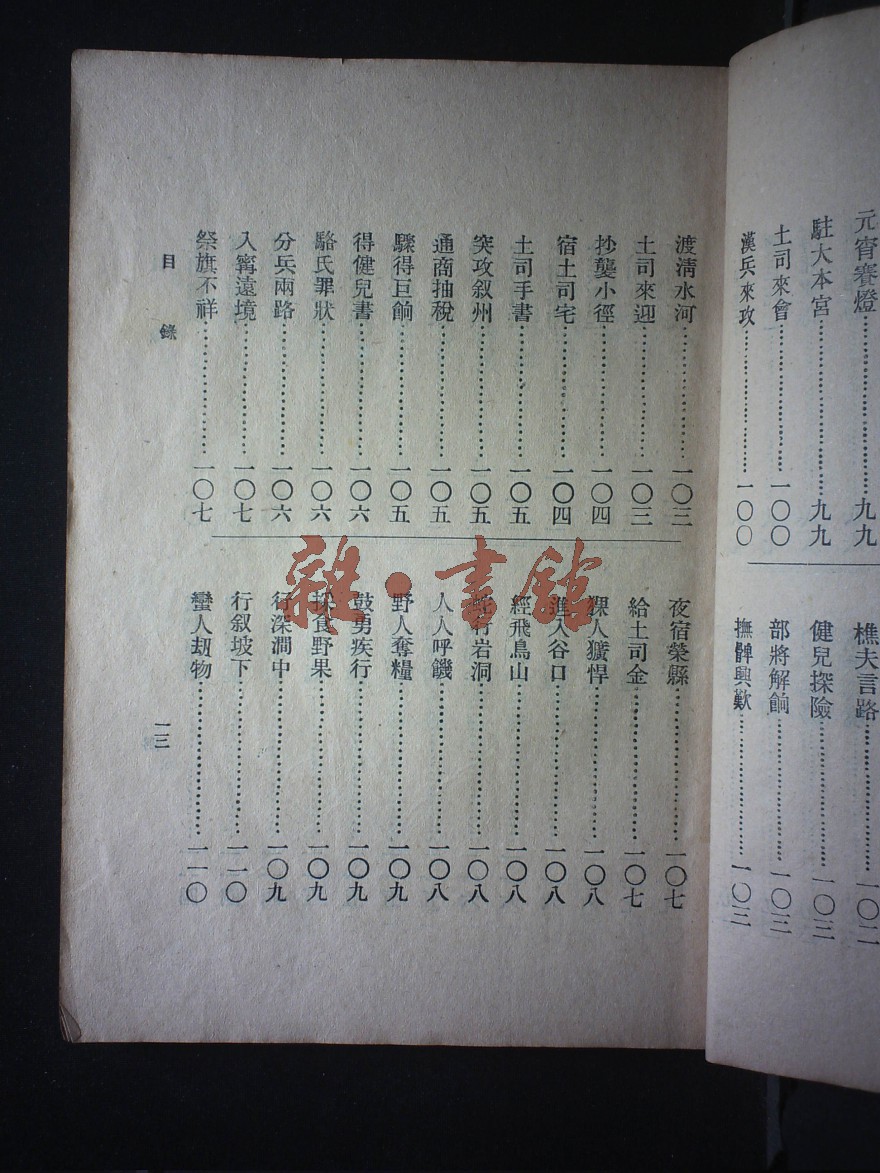 元宵賽燈……九九
駐大本宮……九九
土司來會……一〇〇
漢兵來攻……一〇〇
樵夫言路……一〇二
健兒探險……一〇三
部將解餉……一〇三
撫髀興歎……一〇三
渡清水河……一〇三
土司來迎……一〇三
抄襲小徑……一〇四
宿土司宅……一〇四
土司手書……一〇五
突攻叙州……一〇五
通商抽稅……一〇五
驟得巨餉……一〇五
得健兒書……一〇六
駱氏罪狀……一〇六
分兵兩路……一〇六
入甯遠境……一〇七
祭旗不祥……一〇七
夜宿榮縣……一〇七
給土司金……一〇七
猓人獷悍……一〇八
進入谷口……一〇八
經飛鳥山……一〇八
行岩洞……一〇八
人人呼饑……一〇八
野人奪糧……一〇九
鼓勇疾行……一〇九
採食野果……一〇九
行深澗中……一〇九
行叙坡下……一一〇
蠻人刧物……一一〇
目錄
一三
雜·書館